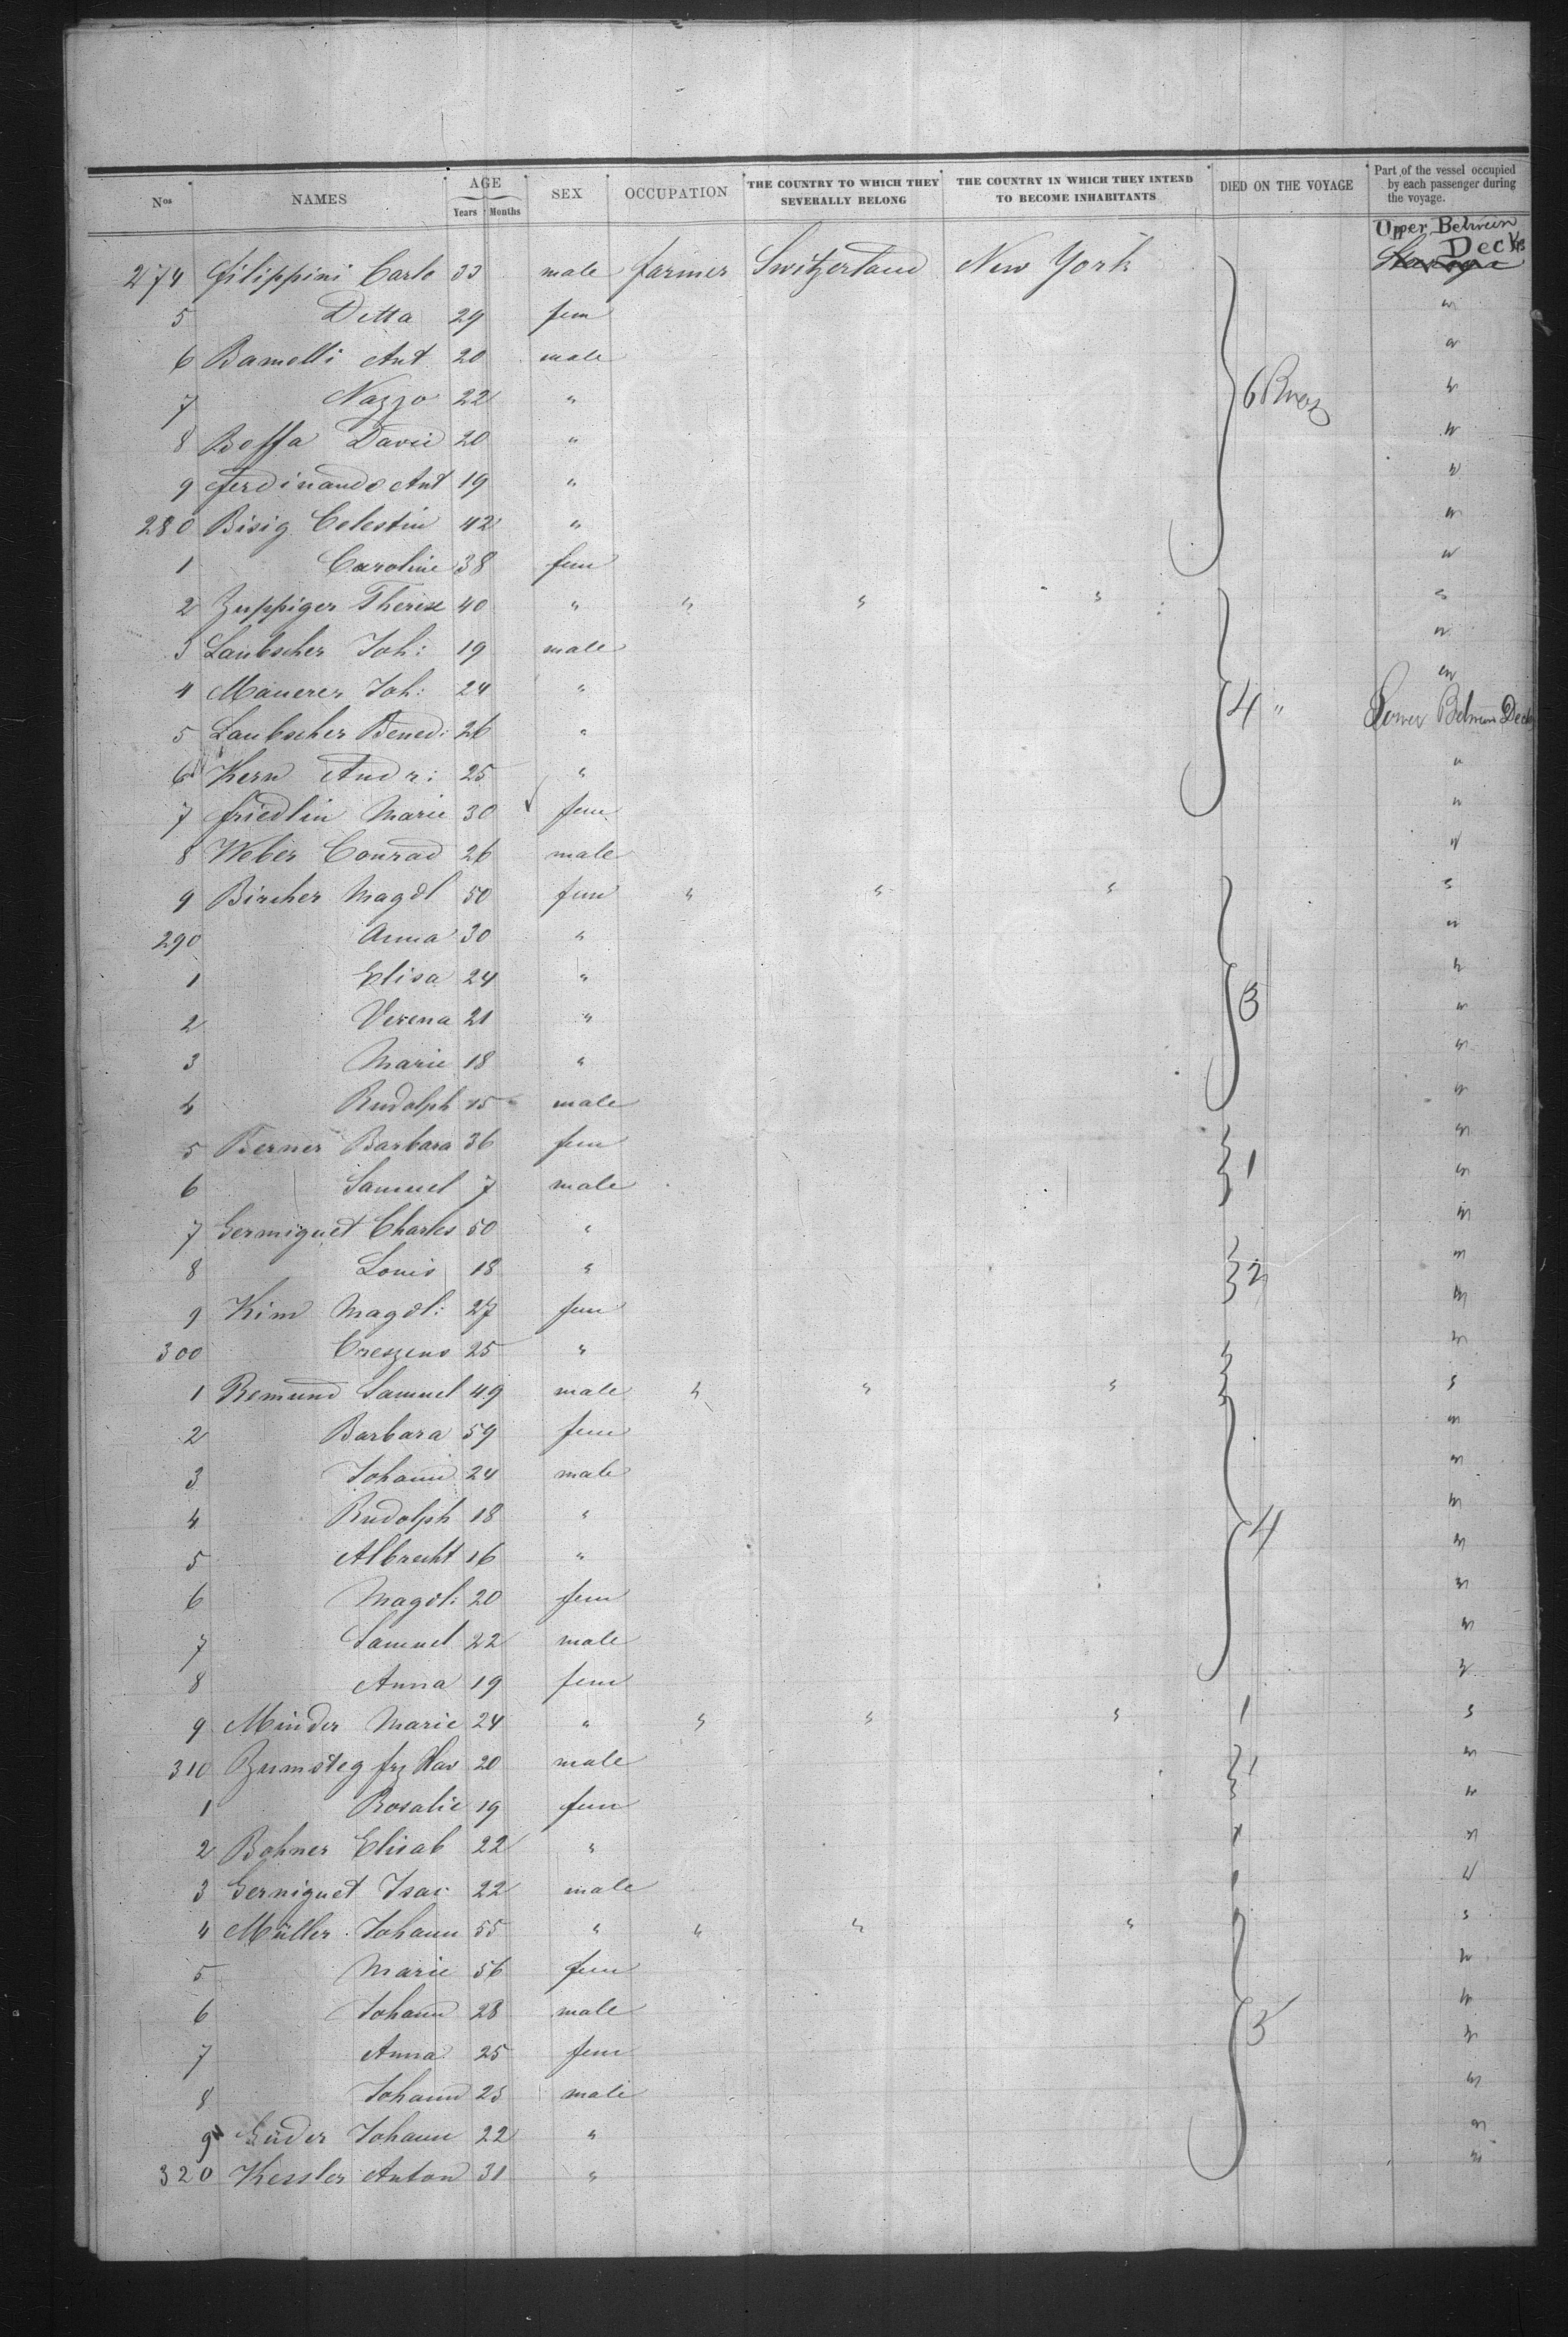 Nos NAMES AGE Years Months SEX OCCUPATION THE COUNTRY TO WHICH THEY SEVERALLY BELONG THE COUNTRY IN WHICH THEY INTEND TO BECOME INHABITANTS DIED ON THE VOYAGE Part of the vessel occupied by each passenger during the voyage.
Upper Between Decks
274 Filippini Carlo 33 male farmer Switzerland New York
5 Ditta 29 fem "
6 Bamelli Ant 20 male "
7 Nazzo 22 " 6 "
8 Boffa David 20 " "
9 Ferdinando Ant 19 " "
280 Bisig Celestin 42 " "
1 Caroline 38 fem "
2 Zuppiger Therese 40 " " " " "
3 Laubscher Joh: 19 male "
4 Maurer Joh: 24 " "
5 Laubscher Bened: 26 " 4 " Lower Between Decks
6 Kern Andr: 25 " "
7 Friedlin Marie 30 fem "
8 Weber Conrad 26 male "
9 Bircher Magdl 50 fem " " " "
290 Anna 30 " "
1 Elisa 24 " "
2 Verena 21 " 3 "
3 Marie 18 " "
4 Rudolph 15 male "
5 Berner Barbara 36 fem "
6 Samuel 7 male 1 "
7 Germiquet Charles 50 " "
8 Louis 18 " 2 "
9 Kim Magdl: 27 fem "
300 Creszens 25 " "
1 Remund Samuel 49 male " " " "
2 Barbara 59 fem "
3 Johann 24 male "
4 Rudolph 18 " 4 "
5 Albrecht 16 " "
6 Magdl: 20 fem "
7 Samuel 22 male "
8 Anna 19 fem "
9 Minder Marie 24 " " " " 1 "
310 Zumsteg frz Xav 20 male 1 "
1 Rosalie 19 fem "
2 Bohner Elisab 22 " 1 "
3 Germiquet Isac 22 male 1 "
4 Müller Johann 55 " " " " "
5 Marie 56 fem "
6 Johann 28 male "
7 Anna 25 fem 3 "
8 Johann 25 male "
9 Güder Johann 22 " "
320 Kessler Anton 31 " "